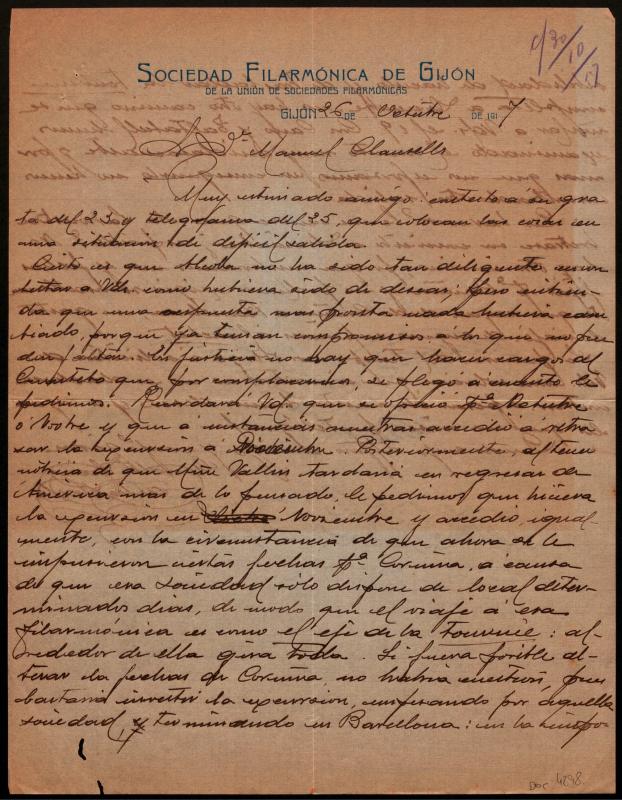 c/ 30/10/17
SOCIEDAD FILARMÓNICA DE GIJÓN
DE LA UNIÓN DE SOCIEDADES FILARMÓNICAS
GIJÓN 26 DE Octubre DE 1917
Sr. Dn. Manuel Clausells
Muy estimado amigo: contesto á su gra-
ta del 23 y telegrama del 25, que colocan las cosas en
una situación de difícil salida.
Cierto es que no ha sido tan diligente en con-
testar á Vds. como hubiera sido de desear; pero entien-
da que una respuesta mas pronta nada hubiera cam-
biado, porque ya tenian compromisos á los que no pue-
dan faltar. En justicia no hay que hacer cargos al
Cuarteto que, por complacernos, se plegó á cuanto le
pedimos. Recordará Vd. que se ofreció pa. Octubre
ó Novbre y que á instancias nuestras accedió á retra-
sar la excursión á Diciembre. Posteriormente, al tener
noticia de que Miñe Vallin tardaria en regresar de
América mas de lo pensado, le pedimos que hiciera
la excursión en Noviembre y accedió, igual-
mente, con la circunstancia de que ahora se le
impusieron ciertas fechas pa. Coruña, á causa
de que esa sociedad sólo dispone de local deter-
minados dias, de modo que el viaje á esa
filarmónica es como el eje de la tournée: al-
rededor de ella gira toda. Si fuera posible al-
terar la fechas de Coruña, no habria cuestión, pues
bastaria invertir la excursion, empezando por aquella
sociedad y terminando en Barcelona: en la
Doc 4898